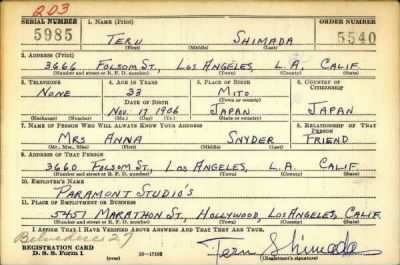 203
SERIAL NUMBER 1. NAME (Print) ORDER NUMBER
5985 TERU SHIMADA 5540
(First) (Middle) (Last)
2. ADDRESS (Print)
3666 FOLSOM ST., LOS ANGELES, L.A. CALIF.
(Number and street or R. F. D. number) (Town) (County) (State)
3. TELEPHONE 4. AGE IN YEARS 5. PLACE OF BIRTH 6. COUNTRY OF CITIZENSHIP
NONE 33 MITO
DATE OF BIRTH (Town or county)
NOV. 17 1906 JAPAN JAPAN
(Exchange) (Number) (Mo.) (Day) (Yr.) (State or country)
7. NAME OF PERSON WHO WILL ALWAYS KNOW YOUR ADDRESS 8. RELATIONSHIP OF THAT PERSON
MRS ANNA SNYDER FRIEND
(Mr., Mrs., Miss) (First) (Middle) (Last)
9. ADDRESS OF THAT PERSON
3660 FOLSOM ST., LOS ANGELES, L.A. CALIF.
(Number and street or R. F. D. number) (Town) (County) (State)
10. EMPLOYER'S NAME
PARAMONT STUDIO'S
11. PLACE OF EMPLOYMENT OR BUSINESS
5451 MARATHON ST., HOLLYWOOD, LOS ANGELES, CALIF
(Number and street or R. F. D. number) (Town) (County) (State)
I AFFIRM THAT I HAVE VERIFIED ABOVE ANSWERS AND THAT THEY ARE TRUE.
Belvedere 27
REGISTRATION CARD
D. S. S. FORM 1 (over) Teru Shimada
(Registrant's signature)